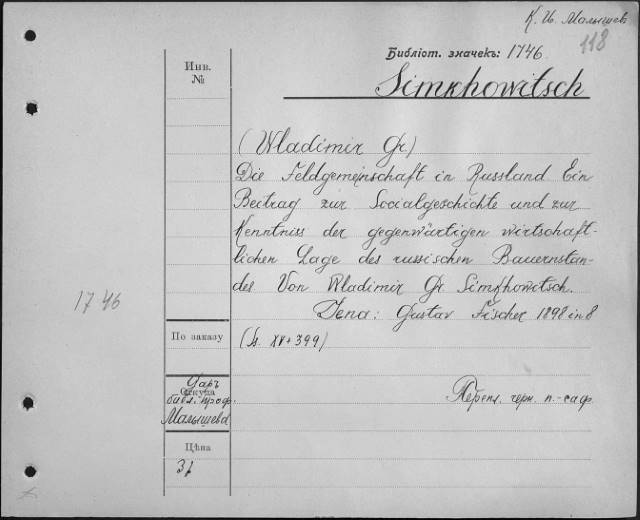 К. И. Малышев
118
Библіот. значекъ: 1746.
Simkhowitsch
Инв.
№
(Wladimir Gr)
Die Feldgemeinschaft in Russland Ein
Beitrag zur Socialgeschichte und zur
Kenntniss der gegenwärtigen wirtschaft-
lichen Lage des russischen Bauernstan-
des Von Wladimir Gr Simkhowitsch.
Jena: Gustav Fischer 1898 in 8
1746
По заказу
(Ss. XV+399)
Откуда
Даръ
библ. проф.
Малышева
Перепл. черн. п.-саф.
Цѣна